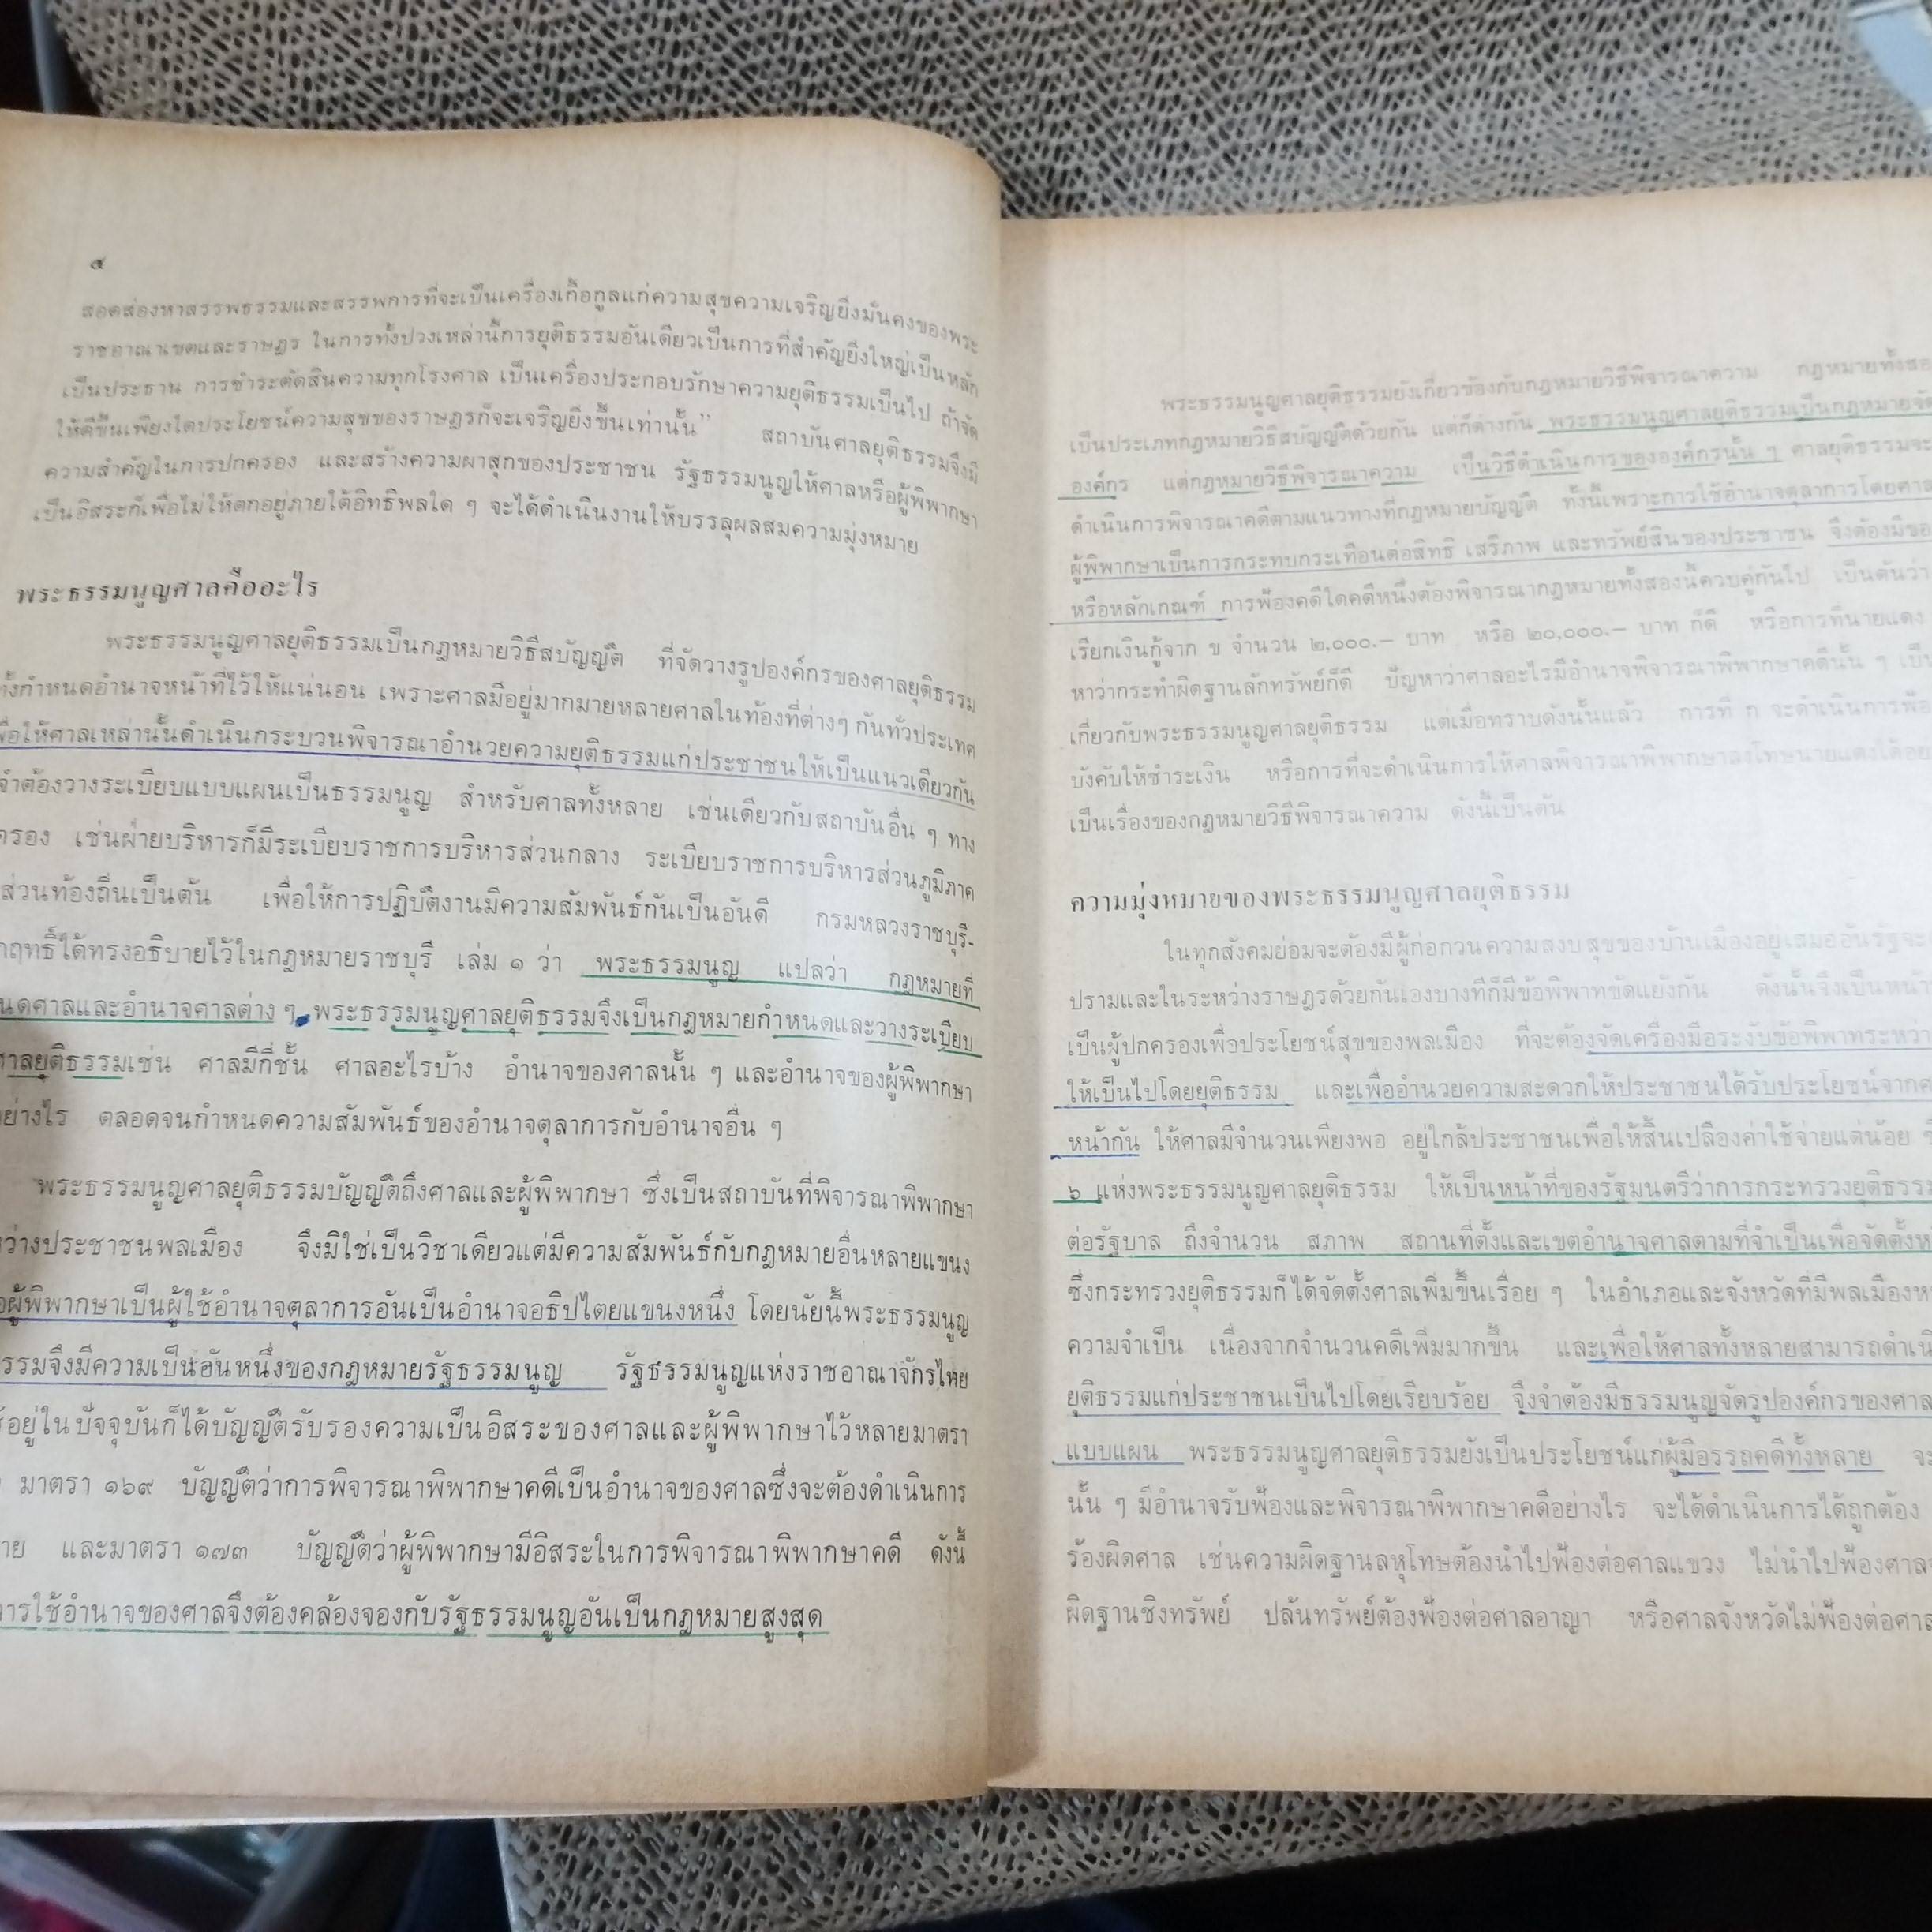 ๕
สอดส่องหาสรรพธรรมและสรรพการที่จะเป็นเครื่องเกื้อกูลแก่ความสุขความเจริญยิ่งมั่นคงของพระ
ราชอาณาเขตและราษฎร ในการทั้งปวงเหล่านี้การยุติธรรมอันเดียวเป็นการที่สำคัญยิ่งใหญ่เป็นหลัก
เป็นประธาน การชำระตัดสินความทุกโรงศาล เป็นเครื่องประกอบรักษาความยุติธรรมเป็นไป ถ้าจัด
ให้ดีขึ้นเพียงใดประโยชน์ความสุขของราษฎรก็จะเจริญยิ่งขึ้นเท่านั้น” สถาบันศาลยุติธรรมจึงมี
ความสำคัญในการปกครอง และสร้างความผาสุกของประชาชน รัฐธรรมนูญให้ศาลหรือผู้พิพากษา
เป็นอิสระก็เพื่อไม่ให้ตกอยู่ภายใต้อิทธิพลใด ๆ จะได้ดำเนินงานให้บรรลุผลสมความมุ่งหมาย
พระธรรมนูญศาลคืออะไร
พระธรรมนูญศาลยุติธรรมเป็นกฎหมายวิธีสบัญญัติ ที่จัดวางรูปองค์กรของศาลยุติธรรม
ทั้งกำหนดอำนาจหน้าที่ไว้ให้แน่นอน เพราะศาลมีอยู่มากมายหลายศาลในท้องที่ต่างๆ กันทั่วประเทศ
เพื่อให้ศาลเหล่านั้นดำเนินกระบวนพิจารณาอำนวยความยุติธรรมแก่ประชาชนให้เป็นแนวเดียวกัน
จำต้องวางระเบียบแบบแผนเป็นธรรมนูญ สำหรับศาลทั้งหลาย เช่นเดียวกับสถาบันอื่น ๆ ทาง
ครอง เช่นฝ่ายบริหารก็มีระเบียบราชการบริหารส่วนกลาง ระเบียบราชการบริหารส่วนภูมิภาค
ส่วนท้องถิ่นเป็นต้น เพื่อให้การปฏิบัติงานมีความสัมพันธ์กันเป็นอันดี กรมหลวงราชบุรี-
ฤทธิ์ได้ทรงอธิบายไว้ในกฎหมายราชบุรี เล่ม ๑ ว่า พระธรรมนูญ แปลว่า กฎหมายที่
นดศาลและอำนาจศาลต่าง ๆ พระธรรมนูญศาลยุติธรรมจึงเป็นกฎหมายกำหนดและวางระเบียบ
ศาลยุติธรรมเช่น ศาลมีกี่ชั้น ศาลอะไรบ้าง อำนาจของศาลนั้น ๆ และอำนาจของผู้พิพากษา
อย่างไร ตลอดจนกำหนดความสัมพันธ์ของอำนาจตุลาการกับอำนาจอื่น ๆ
พระธรรมนูญศาลยุติธรรมบัญญัติถึงศาลและผู้พิพากษา ซึ่งเป็นสถาบันที่พิจารณาพิพากษา
ว่างประชาชนพลเมือง จึงมิใช่เป็นวิชาเดียวแต่มีความสัมพันธ์กับกฎหมายอื่นหลายแขนง
ผู้พิพากษาเป็นผู้ใช้อำนาจตุลาการอันเป็นอำนาจอธิปไตยแขนงหนึ่ง โดยนัยนี้พระธรรมนูญ
รรมจึงมีความเป็นอันหนึ่งของกฎหมายรัฐธรรมนูญ รัฐธรรมนูญแห่งราชอาณาจักรไทย
อยู่ในปัจจุบันก็ได้บัญญัติรับรองความเป็นอิสระของศาลและผู้พิพากษาไว้หลายมาตรา
มาตรา ๑๖๙ บัญญัติว่าการพิจารณาพิพากษาคดีเป็นอำนาจของศาลซึ่งจะต้องดำเนินการ
าย และมาตรา ๑๗๓ บัญญัติว่าผู้พิพากษามีอิสระในการพิจารณาพิพากษาคดี ดังนี้
การใช้อำนาจของศาลจึงต้องคล้องจองกับรัฐธรรมนูญอันเป็นกฎหมายสูงสุด
พระธรรมนูญศาลยุติธรรมยังเกี่ยวข้องกับกฎหมายวิธีพิจารณาความ กฎหมายทั้งสอ
เป็นประเภทกฎหมายวิธีสบัญญัติด้วยกัน แต่ก็ต่างกัน พระธรรมนูญศาลยุติธรรมเป็นกฎหมายจัด
องค์กร แต่กฎหมายวิธีพิจารณาความ เป็นวิธีดำเนินการขององค์กรนั้น ๆ ศาลยุติธรรมจะ
ดำเนินการพิจารณาคดีตามแนวทางที่กฎหมายบัญญัติ ทั้งนี้เพราะการใช้อำนาจตุลาการโดยศาล
ผู้พิพากษาเป็นการกระทบกระเทือนต่อสิทธิ เสรีภาพ และทรัพย์สินของประชาชน จึงต้องมีขอ
หรือหลักเกณฑ์ การฟ้องคดีใดคดีหนึ่งต้องพิจารณากฎหมายทั้งสองนี้ควบคู่กันไป เป็นต้นว่า
เรียกเงินกู้จาก ข จำนวน ๒,๐๐๐.– บาท หรือ ๒๐,๐๐๐.– บาท ก็ดี หรือการที่นายแดง
หาว่ากระทำผิดฐานลักทรัพย์ก็ดี ปัญหาว่าศาลอะไรมีอำนาจพิจารณาพิพากษาคดีนั้น ๆ เป็น
เกี่ยวกับพระธรรมนูญศาลยุติธรรม แต่เมื่อทราบดังนั้นแล้ว การที่ ก จะดำเนินการฟ้อ
บังคับให้ชำระเงิน หรือการที่จะดำเนินการให้ศาลพิจารณาพิพากษาลงโทษนายแดงได้อย
เป็นเรื่องของกฎหมายวิธีพิจารณาความ ดังนี้เป็นต้น
ความมุ่งหมายของพระธรรมนูญศาลยุติธรรม
ในทุกสังคมย่อมจะต้องมีผู้ก่อกวนความสงบสุขของบ้านเมืองอยู่เสมออันรัฐจะ
ปรามและในระหว่างราษฎรด้วยกันเองบางทีก็มีข้อพิพาทขัดแย้งกัน ดังนั้นจึงเป็นหน้า
เป็นผู้ปกครองเพื่อประโยชน์สุขของพลเมือง ที่จะต้องจัดเครื่องมือระงับข้อพิพาทระหว่า
ให้เป็นไปโดยยุติธรรม และเพื่ออำนวยความสะดวกให้ประชาชนได้รับประโยชน์จาก
หน้ากัน ให้ศาลมีจำนวนเพียงพอ อยู่ใกล้ประชาชนเพื่อให้สิ้นเปลืองค่าใช้จ่ายแต่น้อย
๖ แห่งพระธรรมนูญศาลยุติธรรม ให้เป็นหน้าที่ของรัฐมนตรีว่าการกระทรวงยุติธรรม
ต่อรัฐบาล ถึงจำนวน สภาพ สถานที่ตั้งและเขตอำนาจศาลตามที่จำเป็นเพื่อจัดตั้ง
ซึ่งกระทรวงยุติธรรมก็ได้จัดตั้งศาลเพิ่มขึ้นเรื่อย ๆ ในอำเภอและจังหวัดที่มีพลเมือง
ความจำเป็น เนื่องจากจำนวนคดีเพิ่มมากขึ้น และเพื่อให้ศาลทั้งหลายสามารถดำเนิ
ยุติธรรมแก่ประชาชนเป็นไปโดยเรียบร้อย จึงจำต้องมีธรรมนูญจัดรูปองค์กรของศาล
แบบแผน พระธรรมนูญศาลยุติธรรมยังเป็นประโยชน์แก่ผู้มีอรรถคดีทั้งหลาย จะ
นั้น ๆ มีอำนาจรับฟ้องและพิจารณาพิพากษาคดีอย่างไร จะได้ดำเนินการได้ถูกต้อง
ร้องผิดศาล เช่นความผิดฐานลหุโทษต้องนำไปฟ้องต่อศาลแขวง ไม่นำไปฟ้องศาล
ผิดฐานชิงทรัพย์ ปล้นทรัพย์ต้องฟ้องต่อศาลอาญา หรือศาลจังหวัดไม่ฟ้องต่อศาล